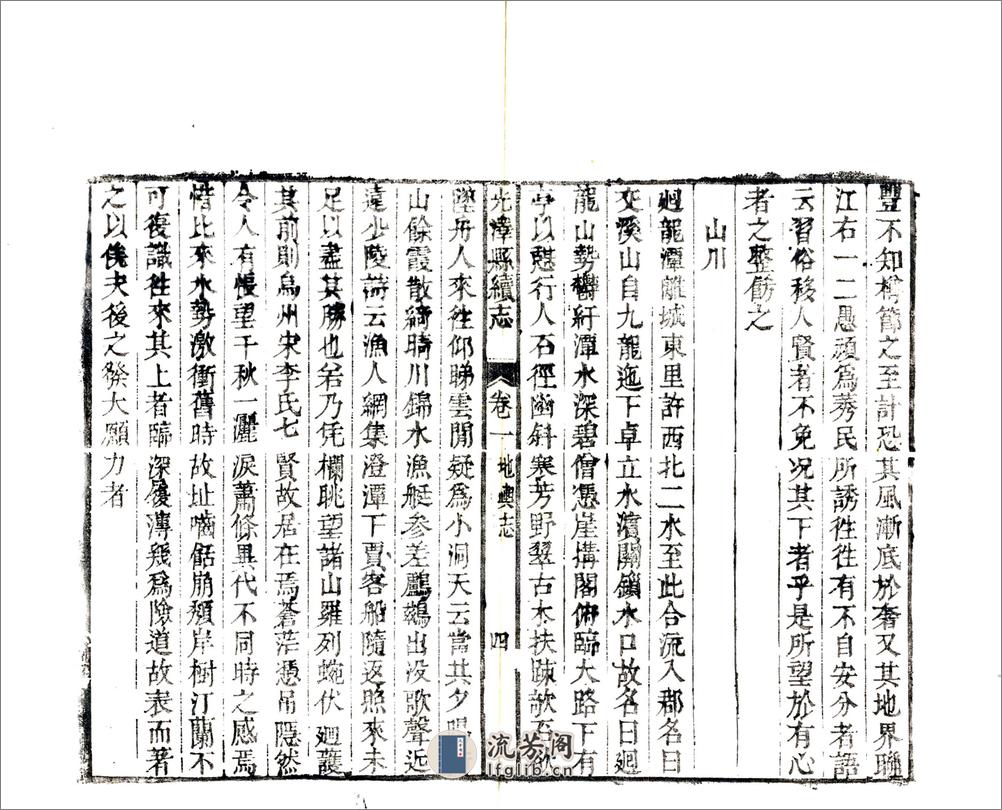 豐不知樽節之至計恐其風漸底於奢又其地界聯
江右一二愚頑爲莠民所誘徃徃有不自安分者語
云習俗移人賢者不免况其下者乎是所望於有心
者之整飭之
山川
廻龍潭離城東里許西北二水至此合流入郡名曰
交溪山自九龍迤下卓立水濱關鎖水口故名曰廻
龍山勢欝紆潭水深碧僧憑崖搆閣俯臨大路下有
亭以憇行人石徑幽斜寒芳野翠古木扶疎欹
光澤縣續志 卷一 地輿志 四
舟人來徃仰睇雲閒疑爲小洞天云當其夕
山餘霞散綺晴川錦水漁艇參差鸕鶿出没歌聲近
遠少陵詩云漁人網集澄潭下賈客船隨返照來未
足以盡其勝也若乃凭欄眺望諸山羅列蜿伏廻護
其前則烏州宋李氏七賢故居在焉蒼茫憑吊隱然
令人有悵望千秋一灑淚蕭條異代不同時之感焉
惜比來水勢激衝舊時故址嚙齬崩頽岸樹汀蘭不
可復識徃來其上者臨深履薄幾爲險道故表而著
之以俟夫後之發大願力者
流芳阁
lfglib.cn